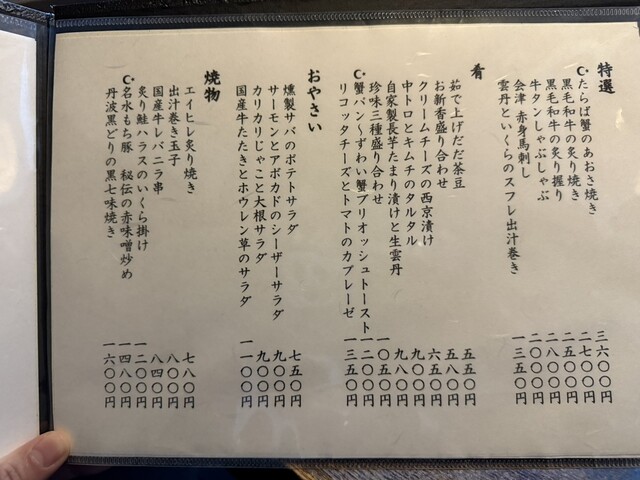 特選
たらば蟹のあおさ焼き 三六〇〇円
黒毛和牛の炙り焼き 二七〇〇円
黒毛和牛の炙り握り 二五〇〇円
牛タンしゃぶしゃぶ 二八〇〇円
会津 赤身馬刺し 二〇〇〇円
雲丹といくらのスフレ出汁巻き 一三五〇円
肴
茹で上げだだ茶豆 五五〇円
お新香盛り合わせ 五八〇円
クリームチーズの西京漬け 六五〇円
中トロとキムチのタルタル 九〇〇円
自家製長芋たまり漬けと生雲丹 九八〇円
珍味三種盛り合わせ 一〇五〇円
蟹パン～ずわい蟹ブリオッシュトースト 一二〇〇円
リコッタチーズとトマトのカプレーゼ 一三五〇円
おやさい
燻製サバのポテトサラダ 七五〇円
サーモンとアボカドのシーザーサラダ 九〇〇円
カリカリじゃこと大根サラダ 九〇〇円
国産牛たたきとホウレン草のサラダ 一一〇〇円
焼物
エイヒレ炙り焼き 七八〇円
出汁巻き玉子 八〇〇円
国産牛レバニラ串 八四〇円
炙り鮭ハラスのいくら掛け 一二〇〇円
名水もち豚 秘伝の赤味噌炒め 一四八〇円
丹波黒どりの黒七味焼き 一六〇〇円